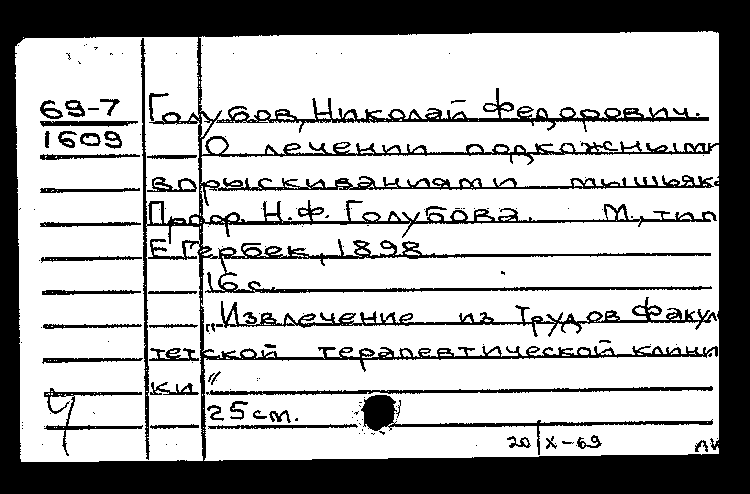 69-7 Голубов, Николай Федорович.
1609 О лечении подкожными
впрыскиваниями мышьяка
Проф. Н.Ф. Голубова. М., тип
Е Гербек, 1898
16 с.
„Извлечение из Трудов Факуль
тетской терапевтической клини
ки"
25 см.
20 X-69